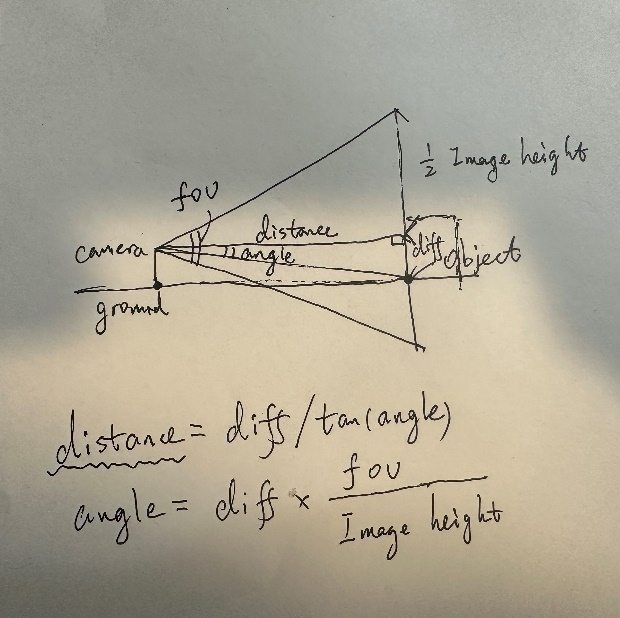 ½ Image height
fov
distance
camera
angle
diff
object
ground
distance = diff / tan(angle)
angle = diff × fov / Image height